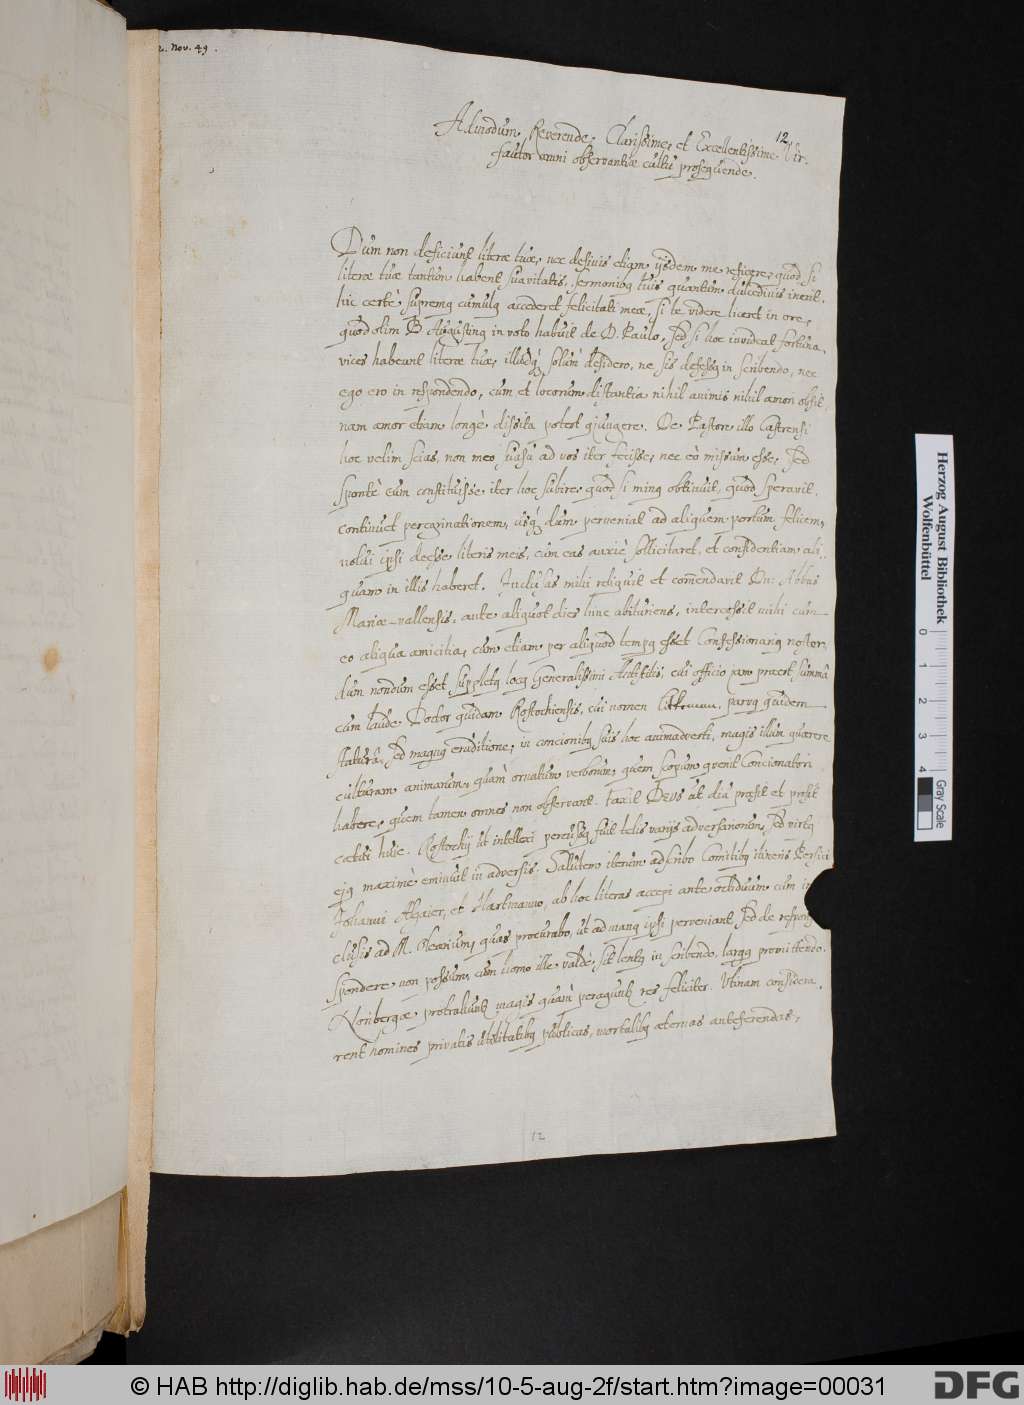 2. Nov. 49.
12
Admodum Reverende, Clarissime, et Excellentissime Vir.
fautor omni observantiæ cultu prosequende.
Dum non deficiunt literæ tuæ, nec desinis etiam iisdem me reficere, quod si
literæ tuæ tantum habent suavitatis, sermonibq tuis quantum dulcedinis inerit.
hic certè supremq cumulq accederet felicitati meæ, si te videre liceret in ore,
quod olim D. Augustinq in voto habuit de D. Paulo, sed si hoc invideat fortuna,
vices habeant literæ tuæ, illudq solùm desidero, ne sis defessq in scribendo, nec
ego ero in respondendo, cum et locorum distantia nihil animis nihil amori obsit,
nam amor etiam longè dissita potest cjungere. De Pastore illo Castrensi
hoc velim scias, non meo suasu ad vos iter fecisse, nec eò missum esse, sed
spontè eum constituisse iter hoc subire, quod si minq obtinuit, quod speravit,
continuet peregrinationem, usq dum perveniat ad aliquem portum felicem,
nolui ipsi deesse literis meis, cum eas anxiè sollicitaret, et confidentiam ali,
quam in illis haberet. Inclusas mihi reliquit et com̃endavit Dn: Abbas
Mariæ-vallensis, ante aliquot dies hinc abituriens, intercessit mihi cum
eo aliqua amicitia, cum etiam per aliquod tempq esset Confessionariq noster,
dum nondum esset suppletq locq Generalissimi Antistitis, cui officio jam præest summâ
cum laude Doctor quidam Rostochiensis, cui nomen parvq quidem
staturâ, sed magnq eruditione, in concionibq suis hoc animadverti, magis illum quærere
culturam animarum, quàm ornatum verborum, quem scopum qvenit Concionatori
habere, quem tamen omnes non observant. Faxit DEUS ut diu præsit et prosit
cætui huic. Rostochij ut intellexi percussq fuit telis varijs adversariorum, sed virtq
ejq maximè eminuit in adversis. Salutem iterum adscribo Comitibq itineris Persici
Johanni Algaier, et Hartmanno, ab hoc literas accepi ante octiduum cum in
clusis ad M. Olearium, quas procurabo, ut ad manq ipsi perveniant, sed de respons
spondere non possum, cum homo ille valdè, sit lentq in scribendo, largq promittendo.
Noribergæ protrahunt magis quàm peragunt res feliciter. Utinam considera,
rent homines privatis utilitatibq publicas, mortalibq æternas anteferendas,
12
Herzog August Bibliothek
Wolfenbüttel
0 1 2 3 4
Gray Scale
© HAB http://diglib.hab.de/mss/10-5-aug-2f/start.htm?image=00031
DFG